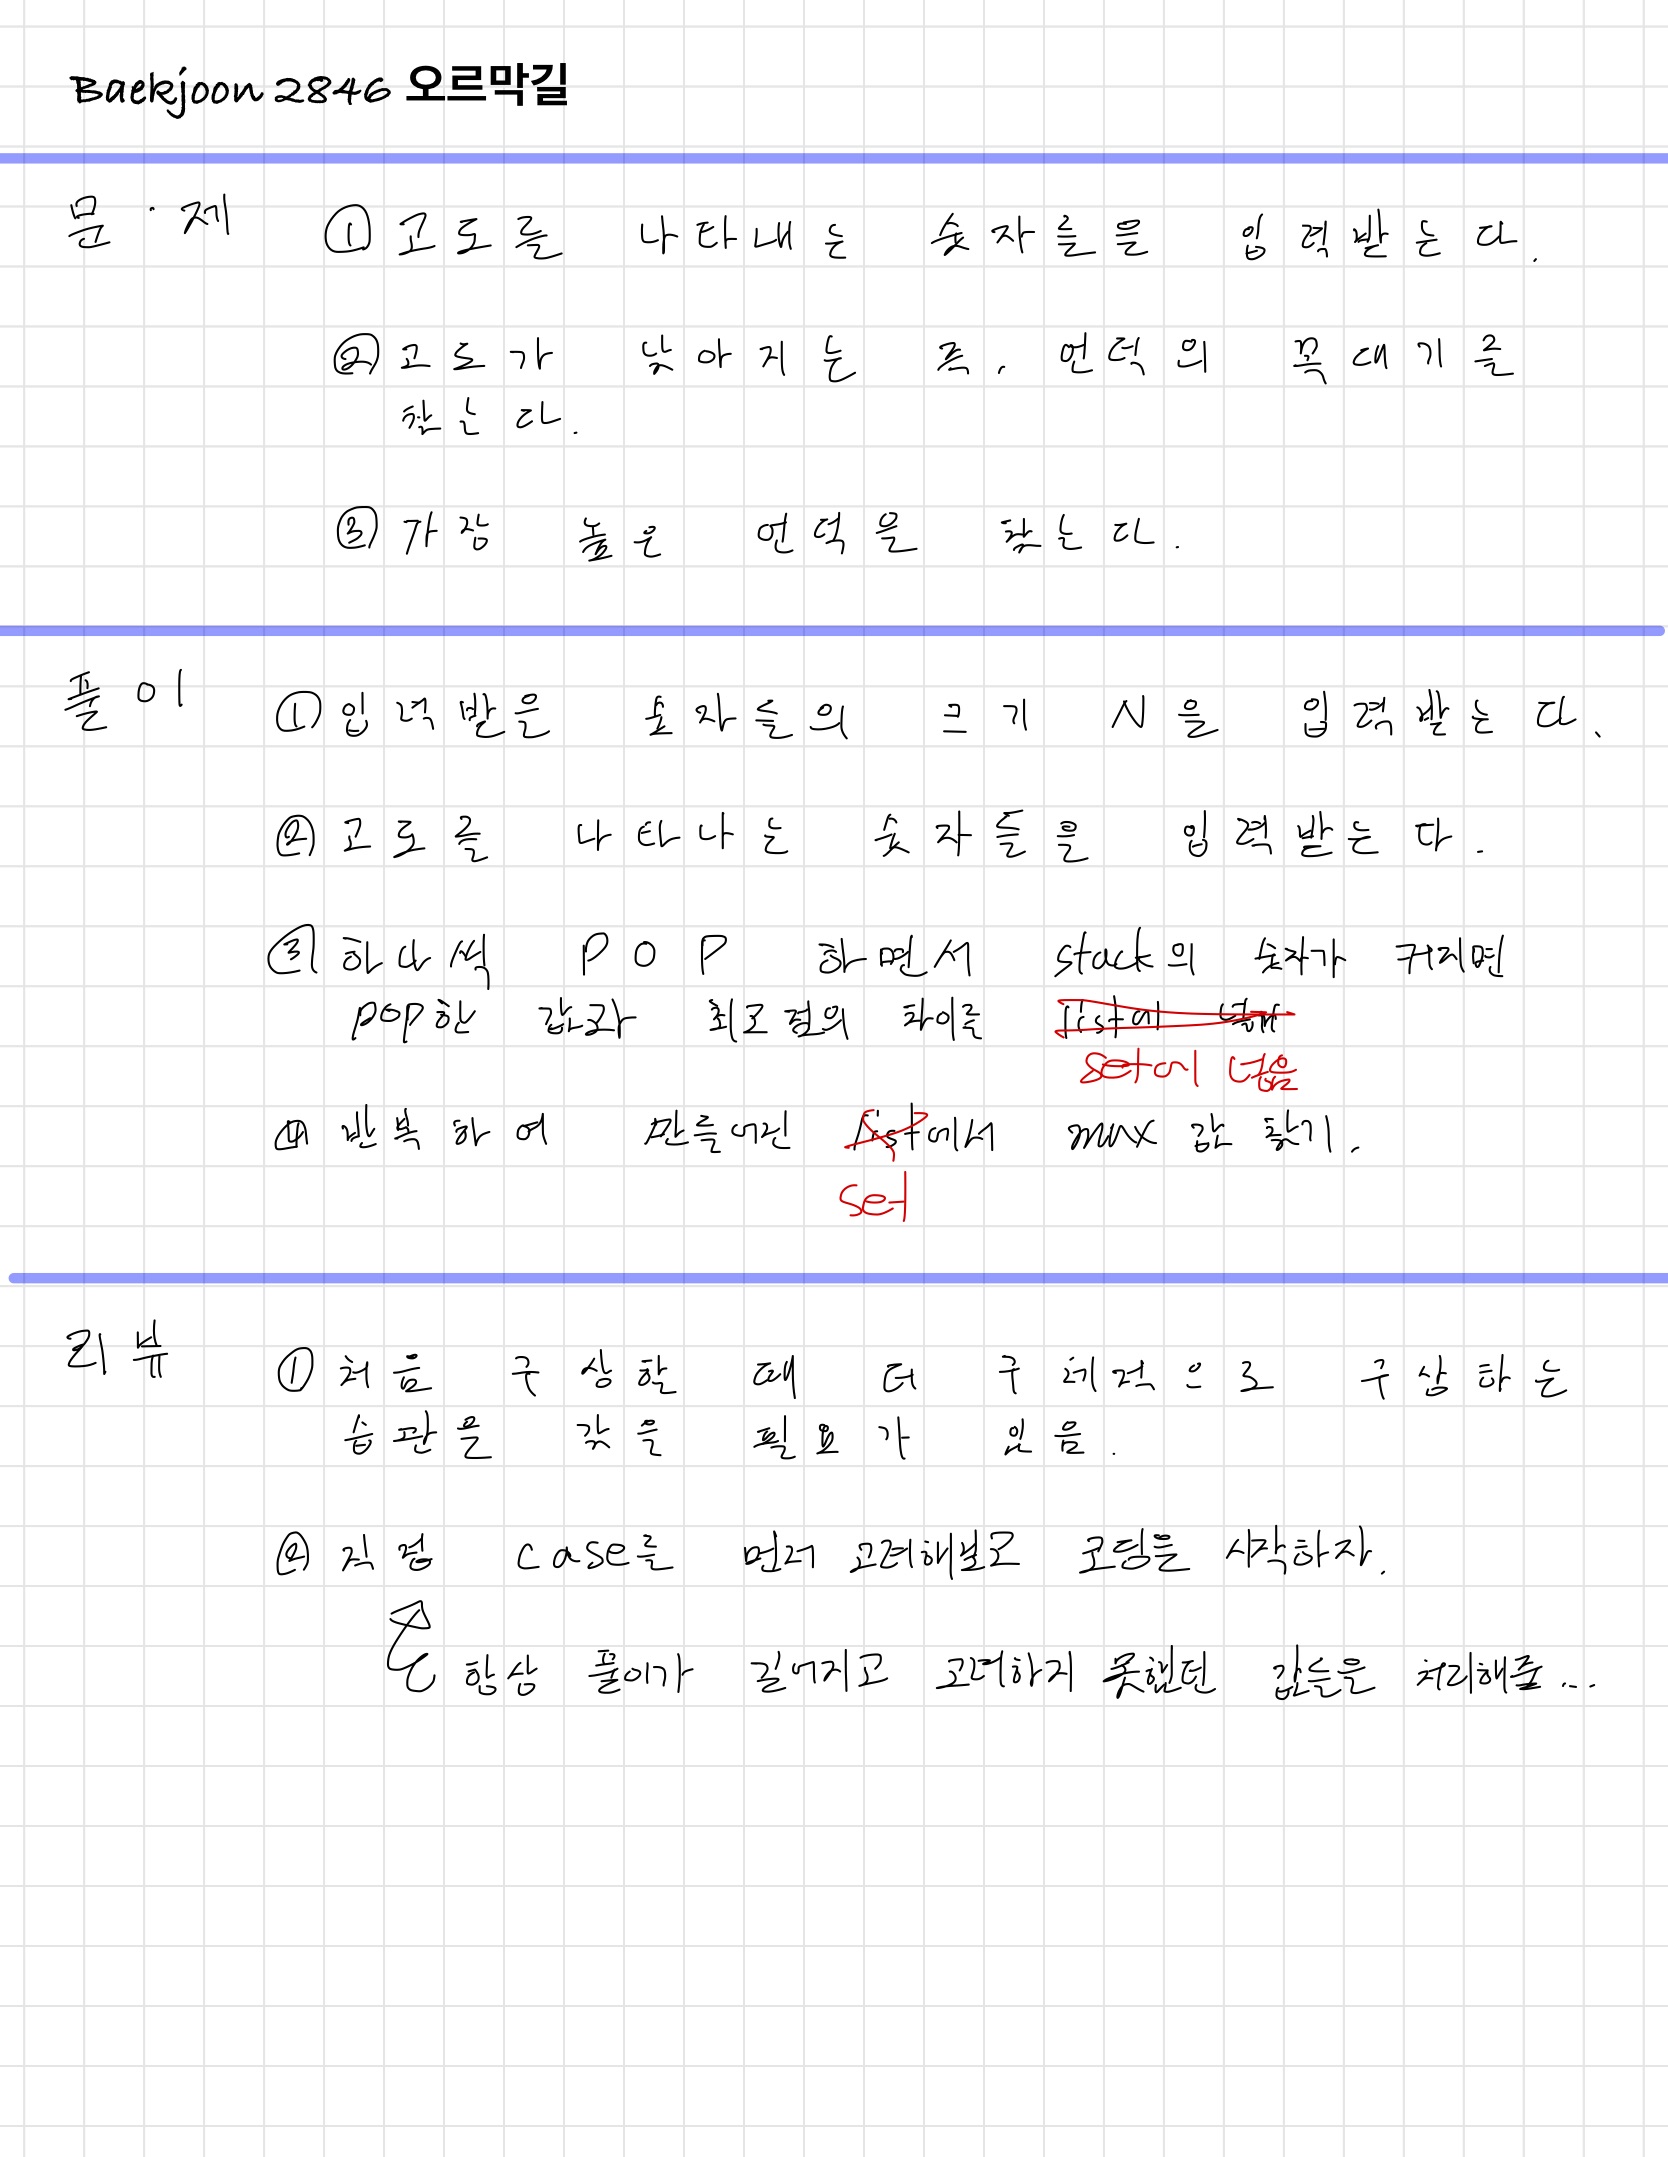 Baekjoon 2846 오르막길
문제 ① 고도를 나타내는 숫자들을 입력받는다.
② 고도가 낮아지는 즉, 언덕의 꼭대기를
찾는다.
③ 가장 높은 언덕을 찾는다.
풀이 ① 입력받을 숫자들의 크기 N을 입력받는다.
② 고도를 나타나는 숫자들을 입력받는다.
③ 하나씩 POP 하면서 stack의 숫자가 커지면
pop한 값과 최고점의 차이를 list에
set에 넣음
④ 반복하여 만들어진 list에서 max 값 찾기.
set
리뷰 ① 처음 구상할 때 더 구체적으로 구상하는
습관을 갖을 필요가 있음.
② 직접 case를 먼저 고려해보고 코딩을 시작하자.
항상 풀이가 길어지고 고려하지 못했던 값들을 처리해줌...